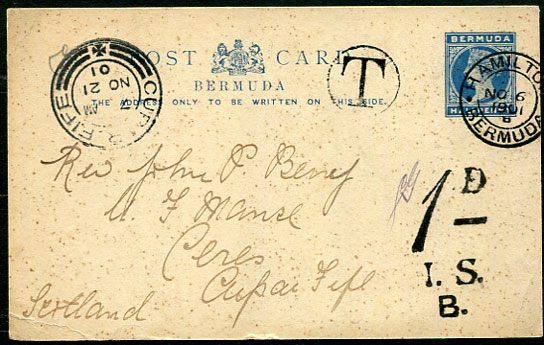 POST CARD
BERMUDA
THE ADDRESS ONLY TO BE WRITTEN ON THIS SIDE.
BERMUDA
HAMILTON
NO 6
1901
BERMUDA
CUPAR-FIFE
AM
NO 21
01
T
Rev John P Berry
U. F Manse
Ceres
Cupar Fife
Scotland
1D
I. S.
B.